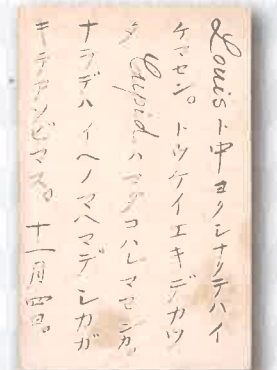 Louisト中ヨクシナクテハイ
ケマセン。トウケイエキデカツ
タCupidハマダコハレマセンカ。
ナラデハイヘノマヘマデシカガ
キテアソビマス。十一月四日。